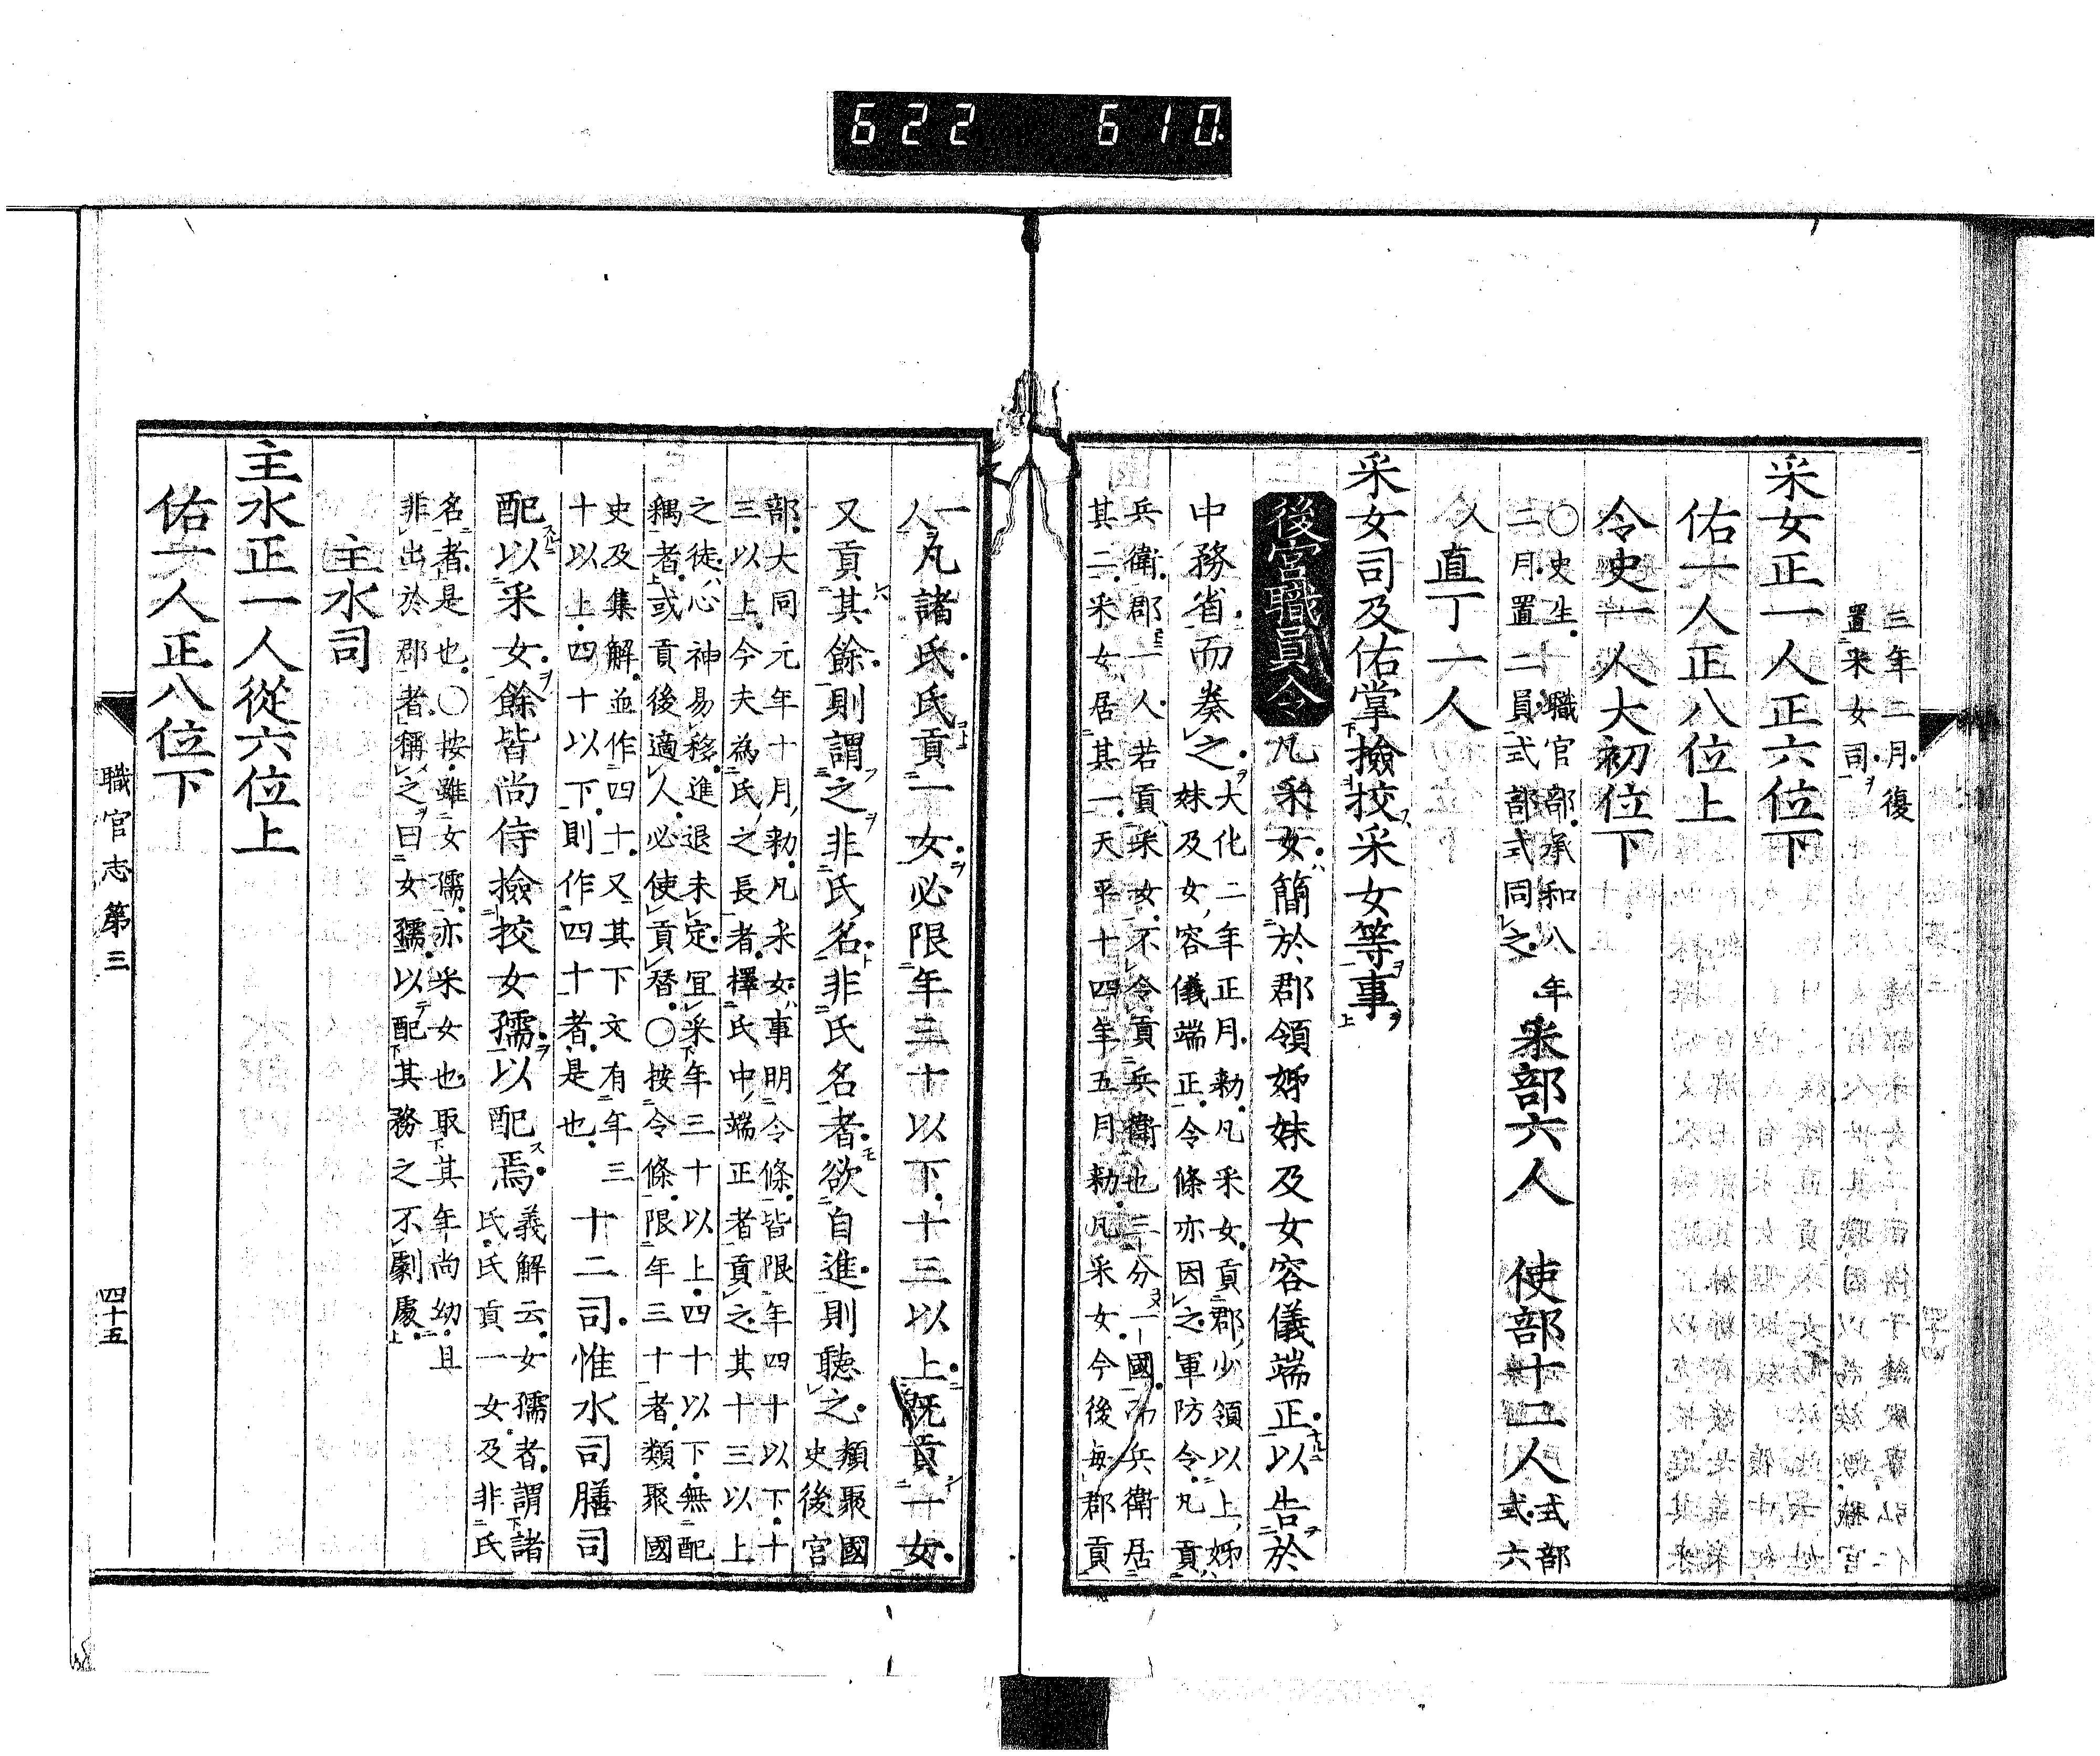 622 610
三年二月復
置采女司
采女正一人正六位下
佑一人正八位上
令史一人大初位下
○史生 職官部承和八年
二月置二員式部式同之
采部六人 使部十二人
式部
式六
人直丁一人
采女司及佑掌撿挍采女等事
後宮職員令 凡采女簡於郡領姊妹及女容儀端正以告於
中務省而奏之
大化二年正月勅凡采女貢郡少領以上姊
妹及女容儀端正令條亦因之軍防令凡貢
兵衛郡一人若貢采女不令貢兵衛也三分一國而兵衛居
其二采女居其一天平十四年五月勅凡采女今後每郡貢
一
人
凡諸氏氏貢一女必限年三十以下十三以上既貢一女
又貢其餘則謂之非氏名非氏名者欲自進則聽之
類聚國
史後宮
部大同元年十月勅凡采女事明令條皆限年四十以下十
三以上今夫為氏之長者擇氏中端正者貢之其十三以上
之徒心神易移進退未定宜采年三十以上四十以下無配
耦者或貢後適人必使貢替○按令條限年三十者類聚國
史及集解並作四十又其下文有年三
十以上四十以下則作四十者是也
十二司惟水司膳司
配以采女餘皆尚侍撿挍女孺以配焉
義解云女孺者謂諸
氏氏貢一女及非氏
名者是也○按雖女孺亦采女也取其年尚幼且
非出於郡者稱之曰女孺以配其務之不劇處
主水司
主水正一人從六位上
佑一人正八位下
職官志第三
四十五